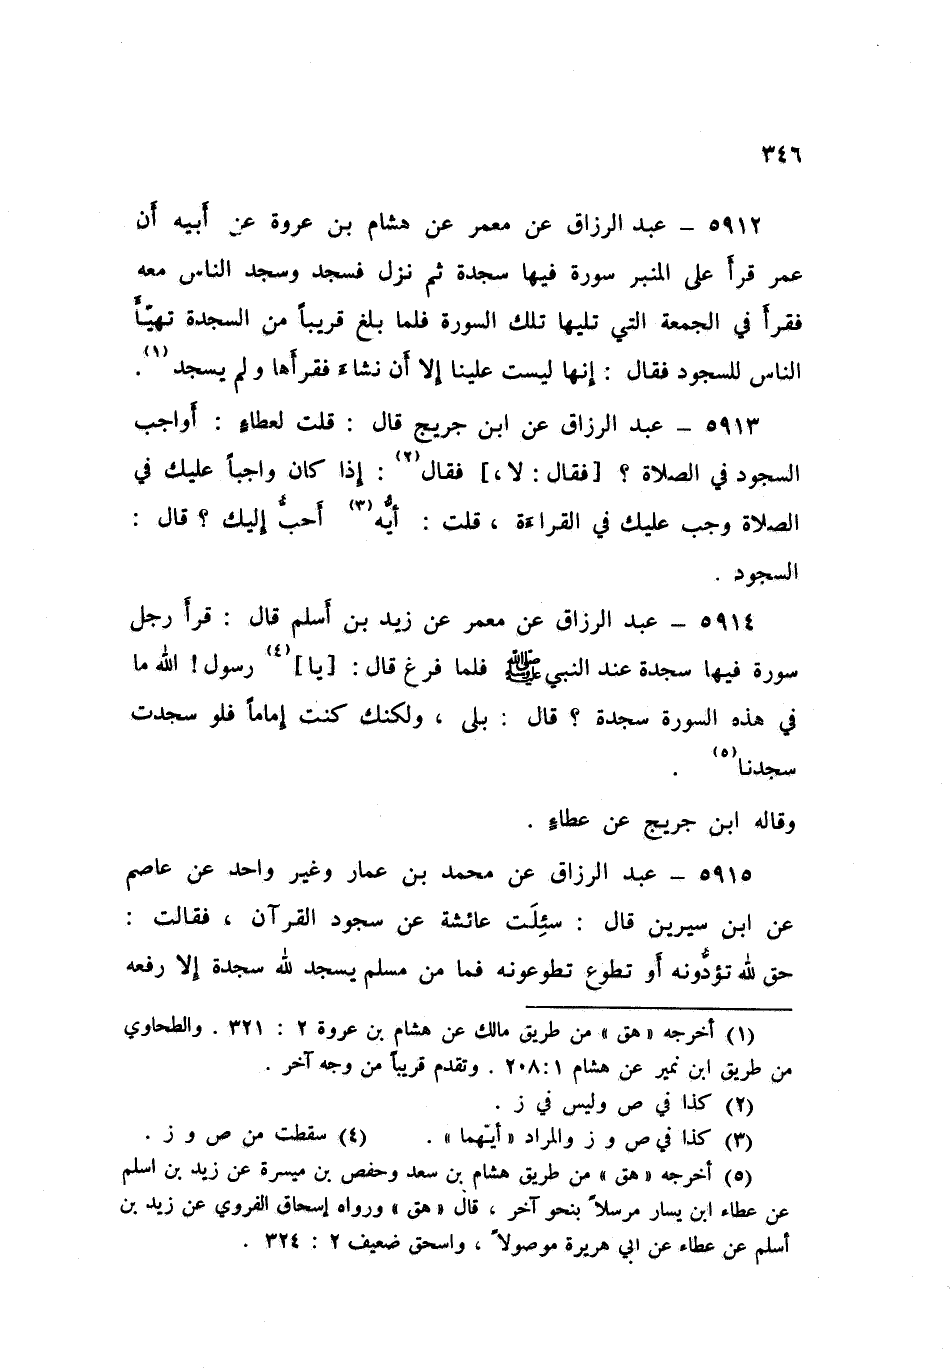 ٣٤٦
٥٩١٢ - عبد الرزاق عن معمر عن هشام بن عروة عن أَبيه أَن
عمر قرأَ على المنبر سورة فيها سجدة ثم نزل فسجد وسجد الناس معه
فقرأَ في الجمعة التي تليها تلك السورة فلما بلغ قريباً من السجدة تهيّأَ
الناس للسجود فقال : إنها ليست علينا إلا أَن نشاءَ فقرأَها ولم يسجد(١).
٥٩١٣ - عبد الرزاق عن ابن جريج قال : قلت لعطاءٍ : أَواجب
السجود في الصلاة ؟ [فقال : لا ،] فقال(٢) : إذا كان واجباً عليك في
الصلاة وجب عليك في القراءَة ، قلت : أَيُّه(٣) أَحبُّ إليك ؟ قال :
السجود .
٥٩١٤ - عبد الرزاق عن معمر عن زيد بن أَسلم قال : قرأَ رجل
سورة فيها سجدة عند النبي ﷺ فلما فرغ قال : [يا](٤) رسول ! الله ما
في هذه السورة سجدة ؟ قال : بلى ، ولكنك كنت إماماً فلو سجدت
سجدنا(٥) .
وقاله ابن جريج عن عطاءٍ .
٥٩١٥ - عبد الرزاق عن محمد بن عمار وغير واحد عن عاصم
عن ابن سيرين قال : سئِلَت عائشة عن سجود القرآن ، فقالت :
حق لله تؤدُّونه أَو تطوع تطوعونه فما من مسلم يسجد لله سجدة إلا رفعه
(١) أخرجه «هق» من طريق مالك عن هشام بن عروة ٢ : ٣٢١ . والطحاوي
من طريق ابن نمير عن هشام ١ : ٢٠٨ . وتقدم قريباً من وجه آخر .
(٢) كذا في ص وليس في ز .
(٣) كذا في ص و ز والمراد «أيّهما» . (٤) سقطت من ص و ز .
(٥) أخرجه «هق» من طريق هشام بن سعد وحفص بن ميسرة عن زيد بن اسلم
عن عطاء ابن يسار مرسلاً بنحو آخر ، قال «هق» ورواه إسحاق الفروي عن زيد بن
أسلم عن عطاء عن ابي هريرة موصولاً ، واسحق ضعيف ٢ : ٣٢٤ .